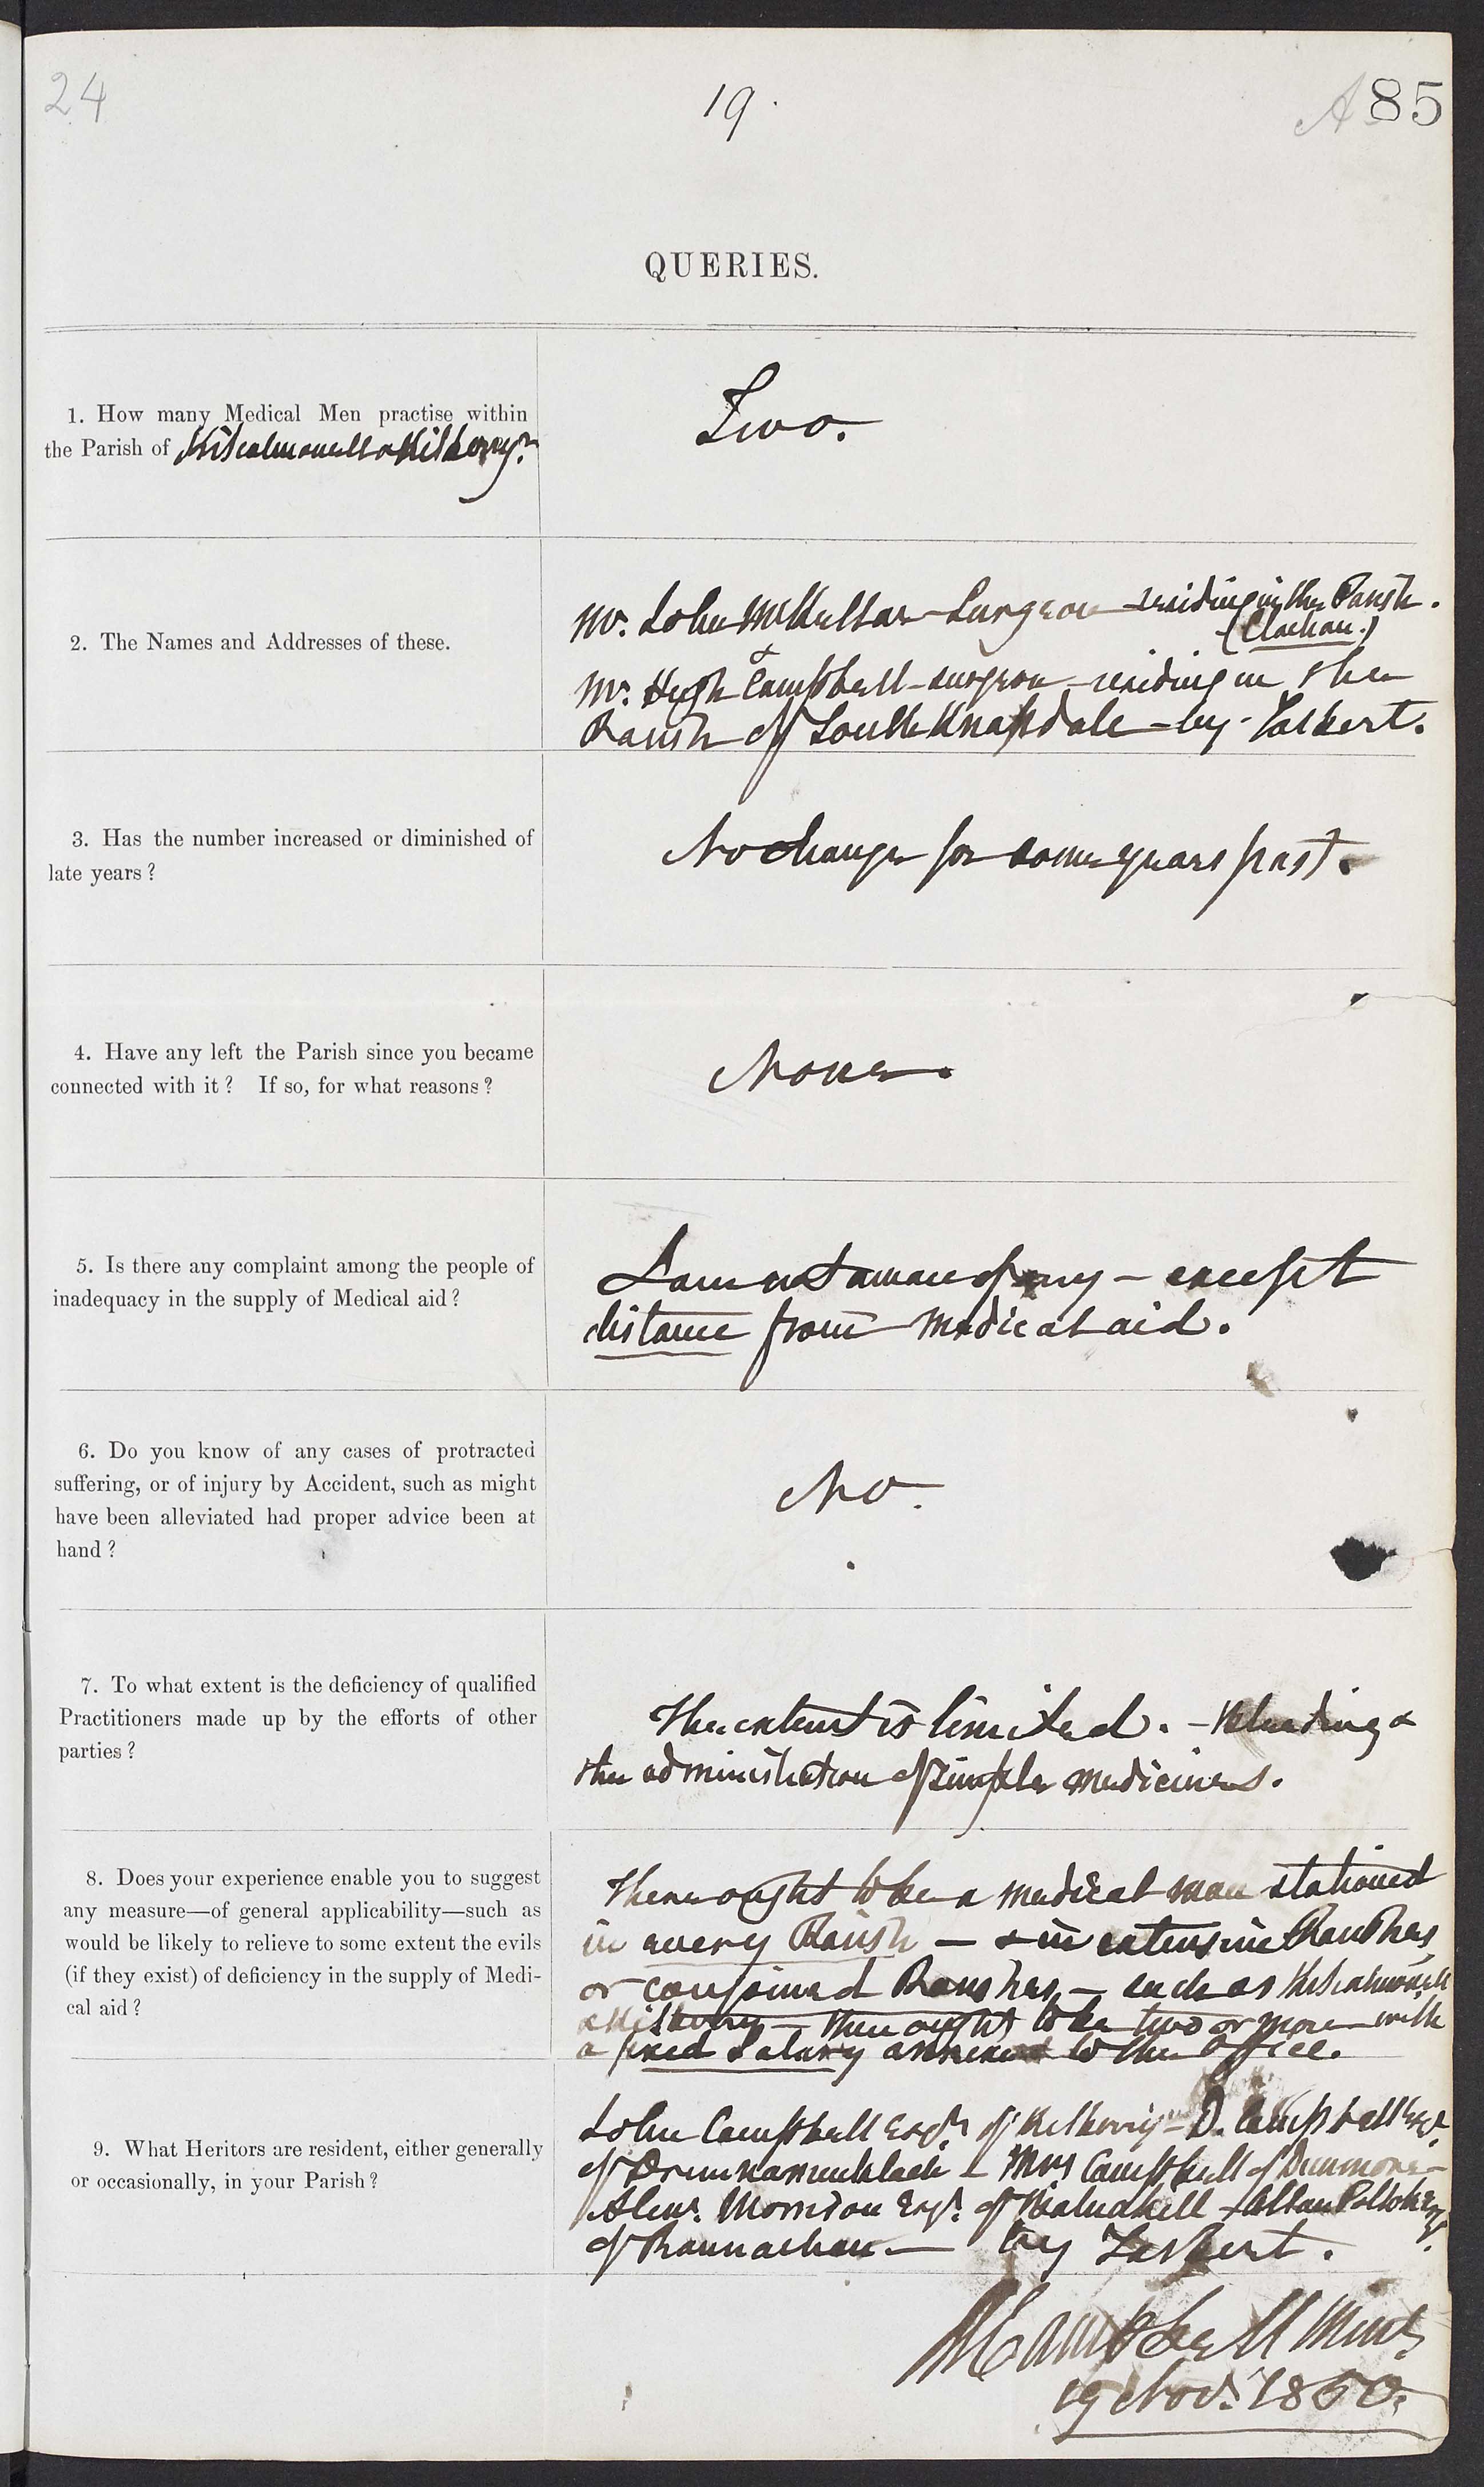 24
19.
A 85
QUERIES.
1. How many Medical Men practise within
the Parish of Kilcalmonell & Kilberry?
Two.
2. The Names and Addresses of these.
Mr. John McKellar - Surgeon - residing in the Parish.
(Clachan.)
&
Mr. Hugh Campbell - surgeon - residing in the
Parish of South Knapdale - by - Tarbert.
3. Has the number increased or diminished of
late years?
No change for some years past.
4. Have any left the Parish since you became
connected with it? If so, for what reasons?
None.
5. Is there any complaint among the people of
inadequacy in the supply of Medical aid?
I am not aware of any - except
distance from medical aid.
6. Do you know of any cases of protracted
suffering, or of injury by Accident, such as might
have been alleviated had proper advice been at
hand?
No.
7. To what extent is the deficiency of qualified
Practitioners made up by the efforts of other
parties?
The extent is limited. - Bleeding &
the administration of simple medicines.
8. Does your experience enable you to suggest
any measure—of general applicability—such as
would be likely to relieve to some extent the evils
(if they exist) of deficiency in the supply of Medi-
cal aid?
There ought to be a medical man stationed
in every Parish - & in extensive Parishes
or conjoined Parishes, - such as Kilcalmonell
& Kilberry - there ought to be two or more - with
a fixed Salary annexed to the office.
9. What Heritors are resident, either generally
or occasionally, in your Parish?
John Campbell Esqr. of Kilberry - D. Campbell Esqr.
of - Mrs Campbell of Dunmore -
Alexr. Morrison Esqr. of - Allan Pollok Esqr.
of Ronnachan - by Tarbert.
Campbell Minr.
19 Novr. 1850.